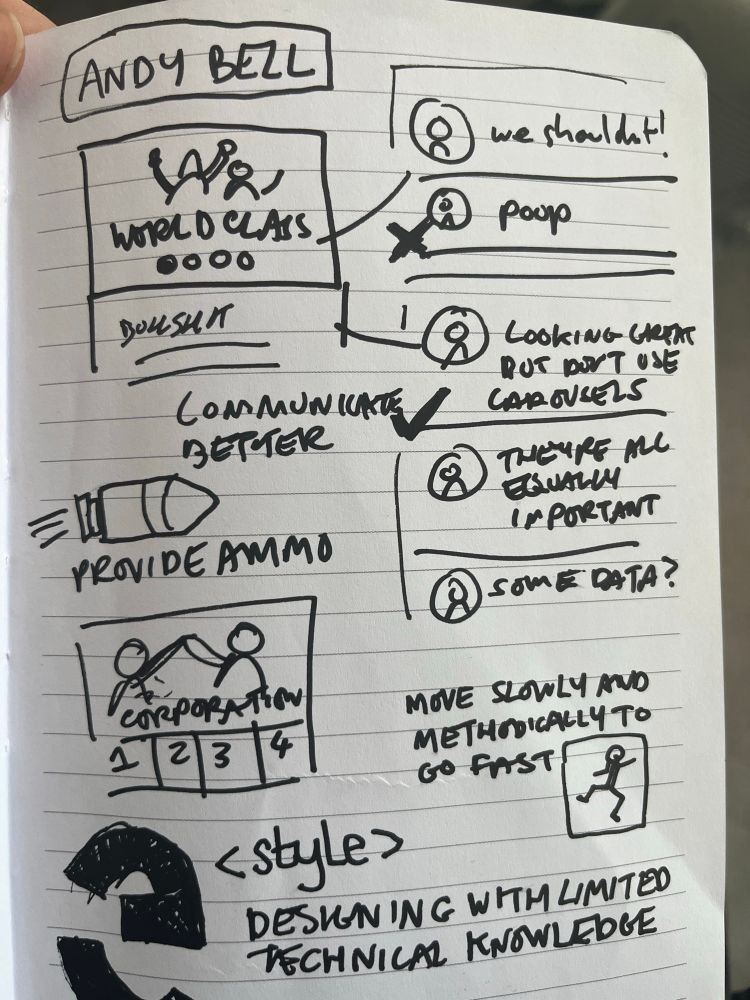 ANDY BELL
WORLD CLASS
BULLSHIT
we shouldn't!
poop
LOOKING GREAT
BUT DON'T USE
CAROUSELS
COMMUNICATE
BETTER
THEY'RE ALL
EQUALLY
IMPORTANT
SOME DATA?
PROVIDE AMMO
CORPORATION
1 2 3 4
MOVE SLOWLY AND
METHODICALLY TO
GO FAST
<style>
DESIGNING WITH LIMITED
TECHNICAL KNOWLEDGE